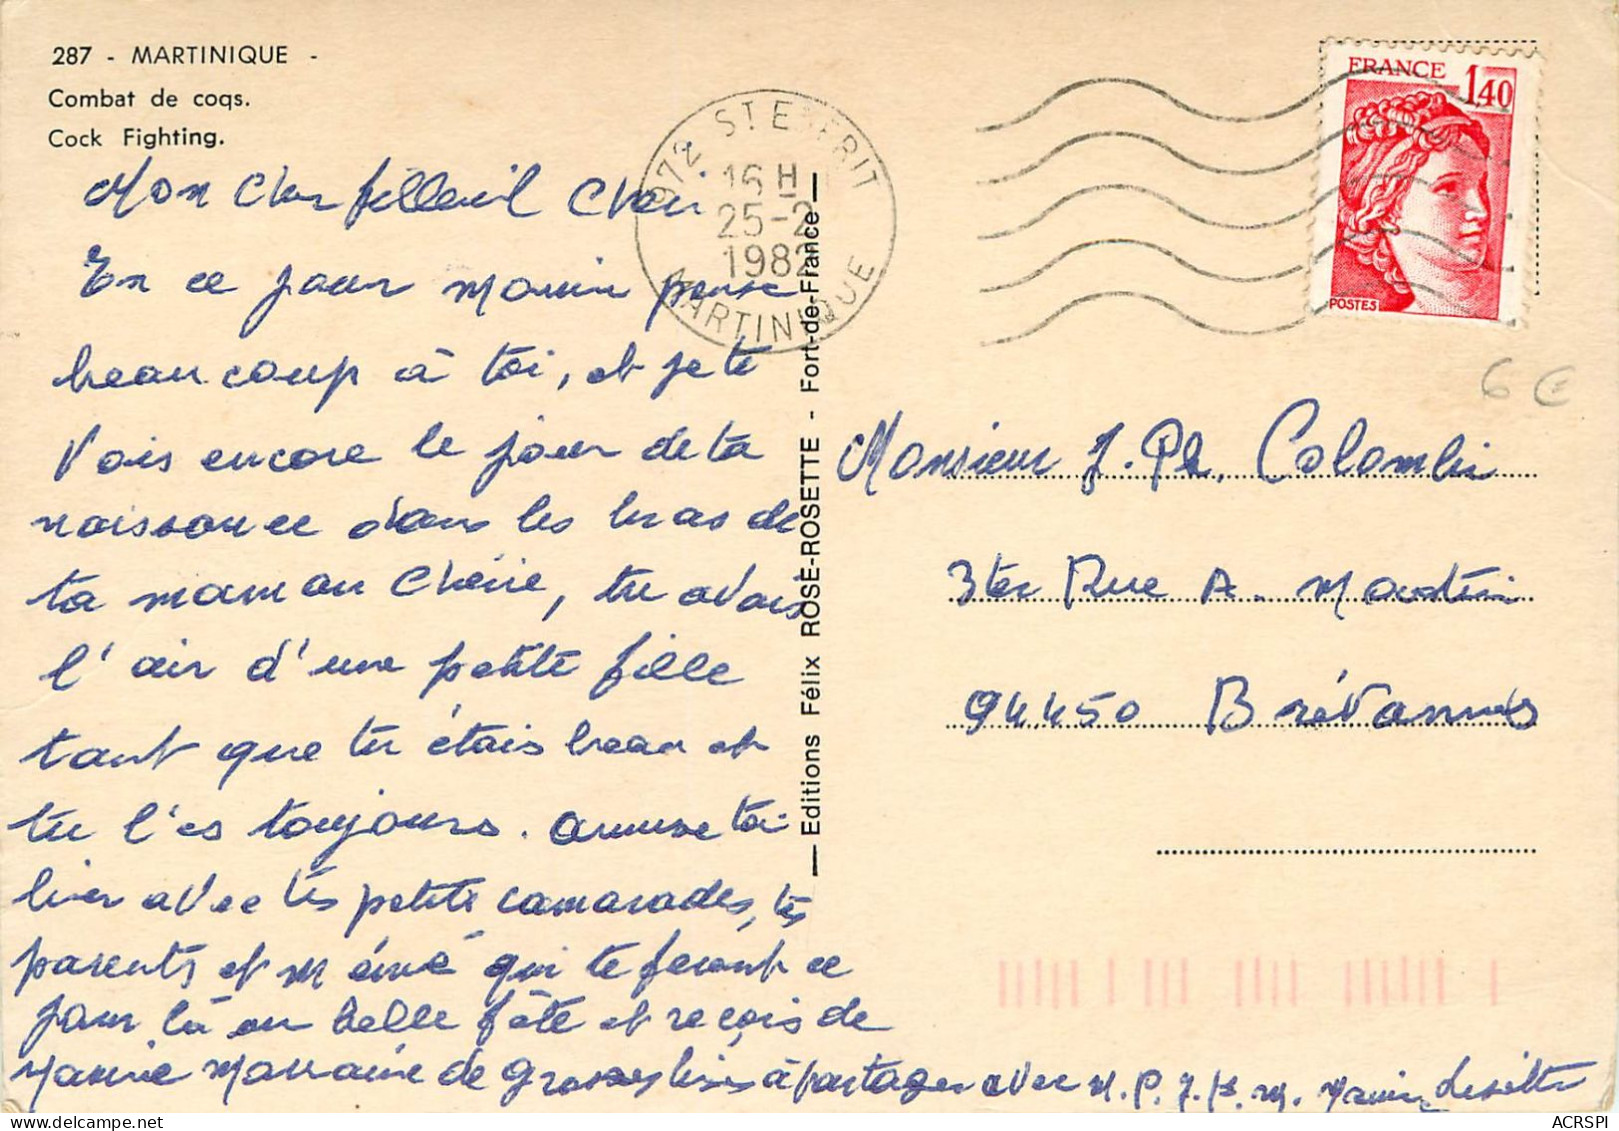 287 - MARTINIQUE -
Combat de coqs.
Cock Fighting.
Mon cher filleuil Cheri
En ce jour Mamin pense
beaucoup à toi, et je te
Vois encore le jour de ta
naissance dans les bras de
ta maman Chérie, tu avais
l'air d'une petite fille
tant que tu étais beau et
tu l'es toujours. amuse toi
bien avec tes petits camarades, tes
parents et Mémé qui te feront ce
jour là une belle fête et reçois de
Marraine de grosses bises à partager avec M. P. J. P. M.
972 ST ESPRIT
16 H
25-2
1982
MARTINIQUE
FRANCE
1,40
POSTES
Editions Félix ROSE-ROSETTE - Fort-de-France
6 €
Monsieur J. Ph. Colombi
3ter Rue A.
94450 Brévannes
ACRSPI